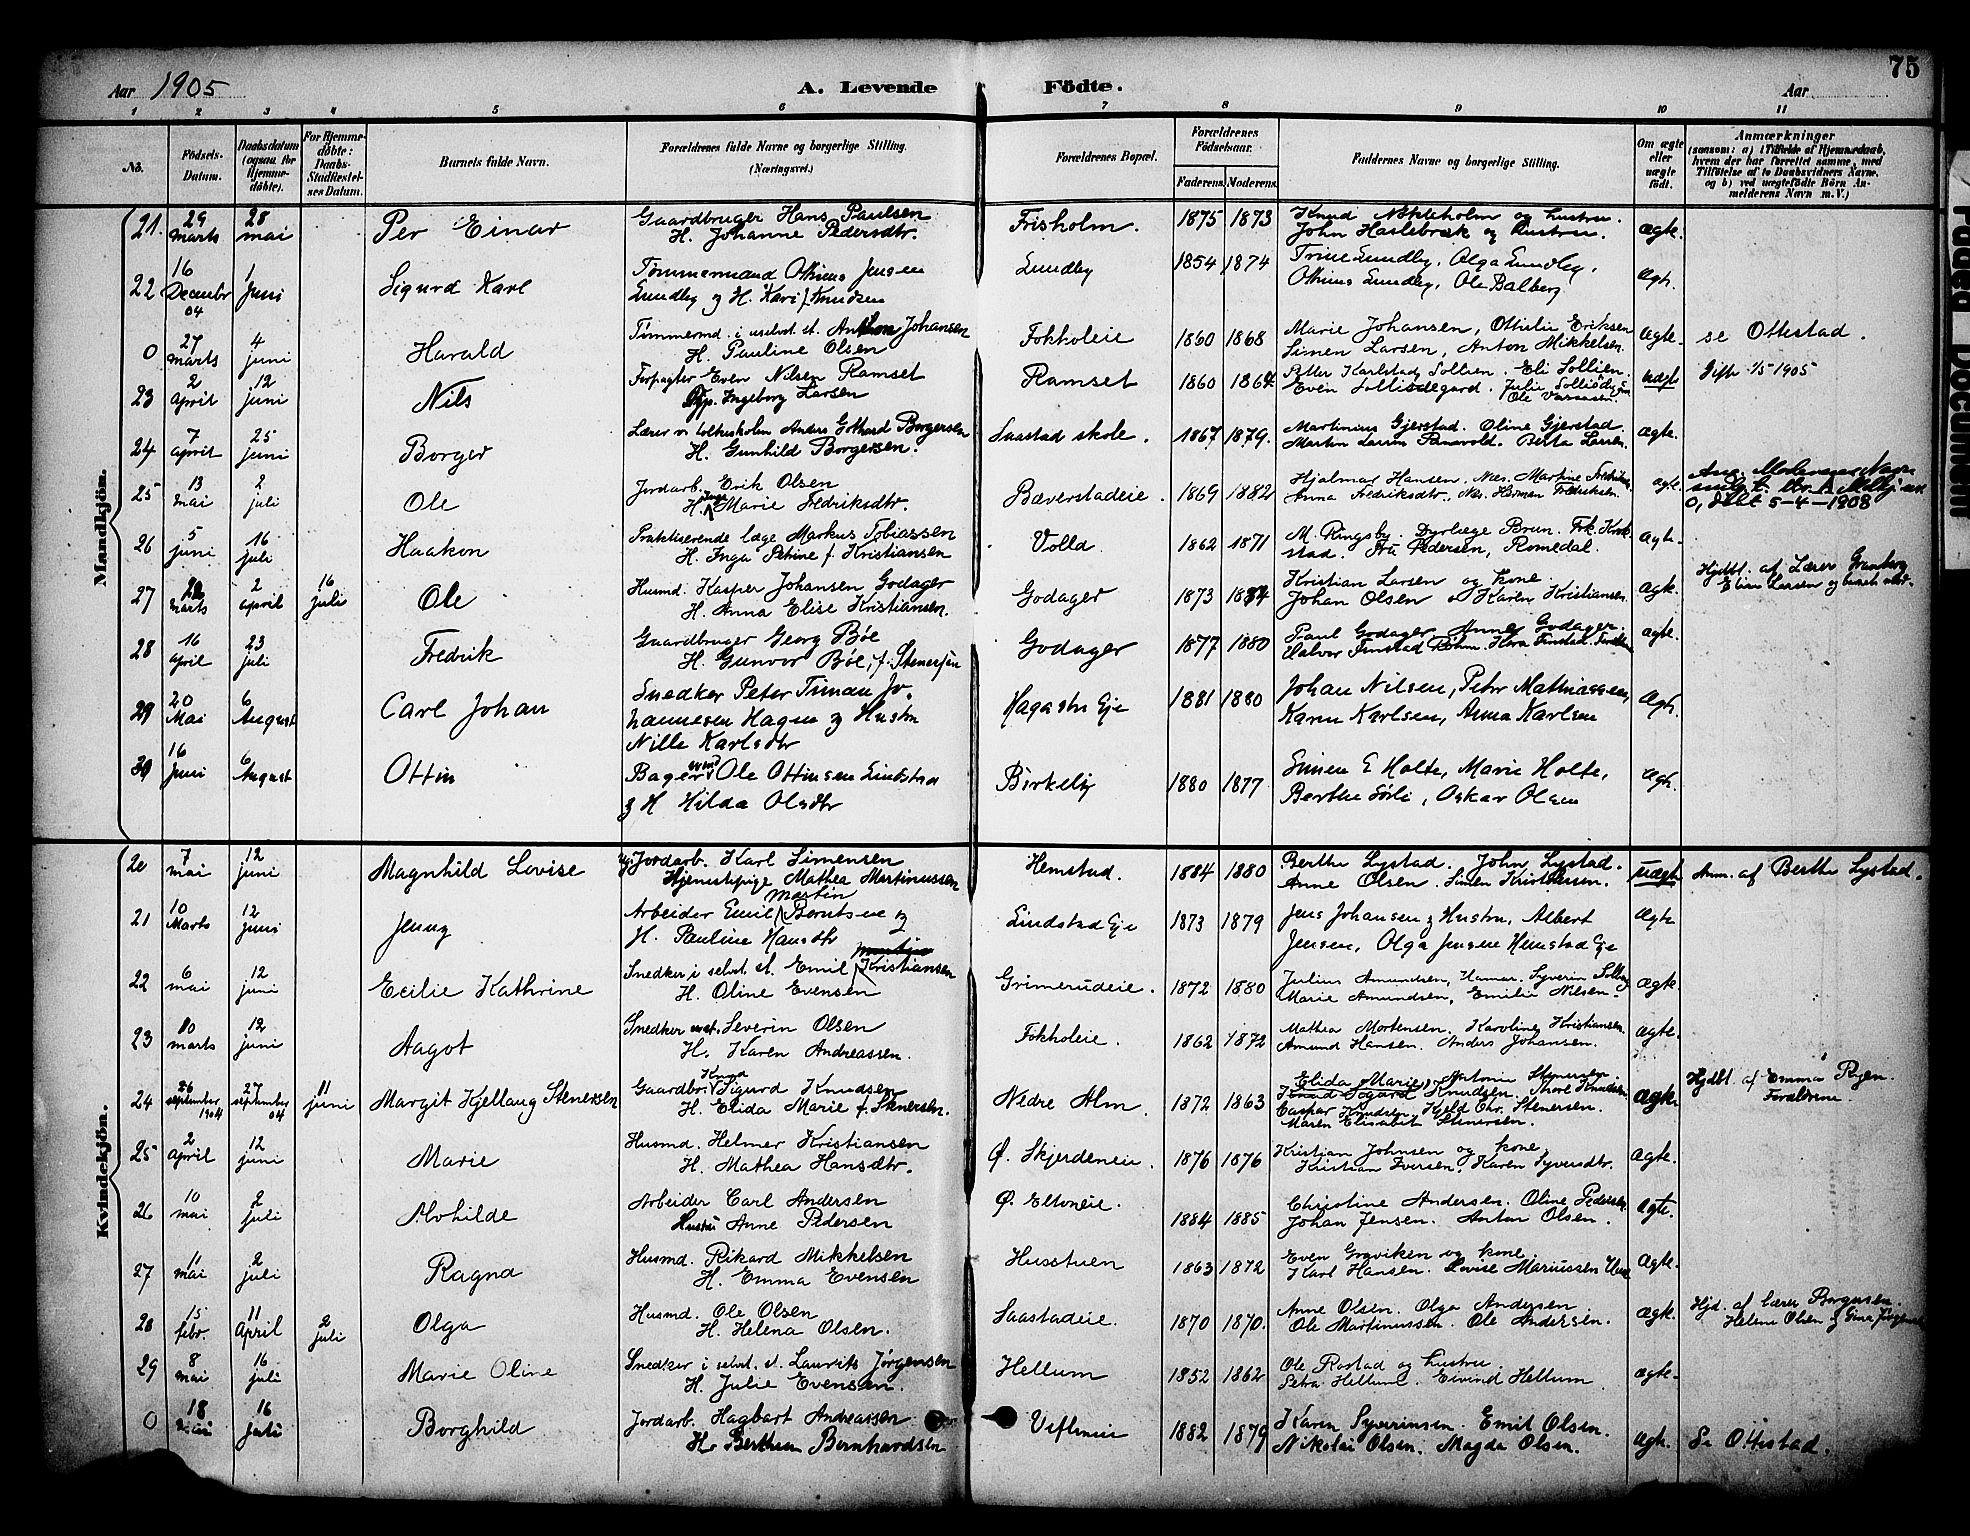 75
Aar 1905 A. Levende Födte. Aar
1 2 3 4 5 6 7 8 9 10 11
No. Födsels-Datum. Daabsdatum (ogsaa for Hjemmedöbte). For Hjemmedöbte: Daabs-Stadfæstelses Datum. Barnets fulde Navn. Forældrenes fulde Navne og borgerlige Stilling. (Næringsvei.) Forældrenes Bopæl. Forældrenes Födselsaar. Faderens. Moderens. Faddernes Navne og borgerlige Stilling. Om ægte eller uægte födt. Anmærkninger (saasom: a) i Tilfælde af Hjemmedaab, hvem der har forrettet samme, med Tilföielse af to Daabsvidners Navne, og b) ved uægtefödte Börn Anmelderens Navn m. V.)
Mandkjön.
21. 29 marts 28 mai Per Einar Gaardbruger Hans Paulsen H. Johanne Pedersdtr. Frisholm. 1875 1873 Knud Nökleholm og hustru. John Haslebræk og hustru. ægte.
22 16 December 04 1 Juni Sigurd Karl Tømmermand Othinus Jensen Lundby og H. Kari f. Knudsen Lundby 1854 1874 Trine Lundby, Olga Lundby, Othinus Lundby, Ole Balberg. Ægte.
0 27 marts 4 juni Harald Tømmermd. i uselvst. st. Anton Johansen H. Pauline Olsen Fokholeie 1860 1868 Marie Johansen, Ottilie Eriksen Simen Larsen, Anton Mikkelsen. Ægte. se Ottestad.
23 2 april 12 juni Nils Forpagter Even Nilsen Ramset Pige. Ingeborg Larsen Ramset 1860 1864 Petter Karlstad Sollien. Eli Sollien. Even Solliødegard. Julie Solliødeg. Ole uægte Gifte 1/5 1905
24 7 april 25 juni Borger Lærer v. folkeskolen Anders Gothard Borgersen H. Gunhild Borgersen. Saastad skole. 1867 1879. Martinius Gjerstad. Oline Gjerstad. Martin Larsen Berta Larsen. ægte.
25 13 mai 2 juli Ole Jordarb. Erik Olsen H. Marie Fredriksdtr. Bæverstadeie. 1869 1882 Hjalmar Hansen, Næs. Martine Fredriksen Anna Fredriksdtr, Næs. Herman Fredriksen. ægte. Ang. Moderens Navn 5-4-1908
26 5 juni 16 juli Haakon Praktiserende læge Markus Tobiassen H. Inga Petrine f. Kristiansen Volld. 1862 1871 M. Ringsby. Dyrlæge Brun. Frk. Kirkstad. Fru Pedersen, Romedal. Ægte.
27 22 marts 2 april 16 juli Ole Husmd. Kasper Johansen Godager H. Anna Elise Kristiansen. Godager 1873 1884 Kristian Larsen og kone. Johan Olsen o Karen Kristiansen. ægte. Hjdbt. af Lærer Granberg Eline Larsen og barnets mor.
28 16 April 23 juli Fredrik Gaardbruger Georg Bøe H. Gunvor Bøe, f. Stenersen Godager 1877 1880 Paul Godager, Anne Godager. Halvor Finstad ægte.
29 20 Mai 6 August Carl Johan Snedker Peter Timan Johannesen Hagen og Hustru Nille Karlsdtr Hagastu Eje 1881 1880 Johan Nilsen, Peter Mathiassen, Karen Karlsen, Anna Karlsen Ægte.
30 16 Juni 6 August Ottin Bagersvend Ole Ottinsen Lindstad og H Hilda Olsdtr Birkeby 1880 1877 Simen E Holte, Marie Holte, Berthe Sørli, Oskar Olsen Ægte.
Kvindekjön.
20 7 mai 12 juni Magnhild Lovise Jordarb. Karl Simensen Hjemstepige Mathea Martinussen Hemstad. 1884 1880 Berthe Lystad. John Lystad. Anne Olsen. Simen Kristiansen. uægte Anm. af Berthe Lystad.
21 10 Marts 12 juni Jenny Arbeider Emil Martin Berntsen og H. Pauline Hansdtr Lindstad Eje 1873 1879 Jens Johansen og Hustru, Albert Jensen, Olga Jensen Hemstad Eje Ægte
22 6 mai 12 juni Ecilie Kathrine Snedker i selvst. st. Emil Kristiansen H. Oline Evensen Grimerudeie. 1872 1880 Julius Amundsen, Hamar. Syverin Solberg Marie Amundsen, Emilie Nilsen. ægte.
23 10 marts 12 juni Aagot Snedker Severin Olsen H. Karen Andreassen. Fokholeie. 1862 1872 Mathea Mortensen. Karoline Kristiansen. Amund Hansen. Anders Johansen. ægte.
24 26 september 1904 27 september 04 11 juni Margit Kjellaug Stenersen Gaardbr. Knud Sigurd Knudsen H. Elida Marie f. Stenersen. Nedre Alm 1872 1863 Elida Marie, Antonie Stenersen Knud Sigurd Knudsen. Thore Knudsen Caspar Knudsen. Kjeld Chr. Stenersen. Maren Elisabet Stenersen. Ægte. Hjdbt. af Emma Ryen. Forældrene.
25 2 April 12 juni Marie Husmd. Helmer Kristiansen H. Mathea Hansdtr. Ø. Skjerdeneie. 1876 1876 Kristian Johnsen og kone. Kristian Iversen. Karen Syversdtr. Ægte.
26 10 mai 2 juli Alvhilde Arbeider Carl Andersen Hustru Anne Pedersen Ø. Eltoneie. 1884 1885 Christine Andersen. Oline Pedersen Johan Jensen. Anton Olsen. Ægte.
27 11 mai 2 juli Ragna Husmd. Rikard Mikkelsen H. Emma Evensen Husstuen 1863 1872 Even Graviken og kone. Karl Hansen. Lovise Mariussen Ægte.
28 15 febr. 11 April 2 juli Olga Husmd. Ole Olsen H. Helena Olsen. Saastadeie. 1870 1870. Anne Olsen. Olga Andersen Ole Martinussen. Ole Andersen. ægte. Hjd. af lærer Borgersen. Helene Olsen og Gina Jørgensen
29 8 mai 16 juli Marie Oline Snedker i selvst. st. Laurits Jørgensen H. Julie Evensen. Hellum 1852 1862 Ole Rostad og hustru. Petra Hellum. Eivind Hellum. ægte.
0 18 Mai 16 Juli Borghild Jordarb. Hagbart Andreassen. H. Berthea Bernhardsen Veflineie 1882 1879 Karen Syverinsen. Emil Olsen. Nikolai Olsen. Magda Olsen. Ægte. Se Ottestad.